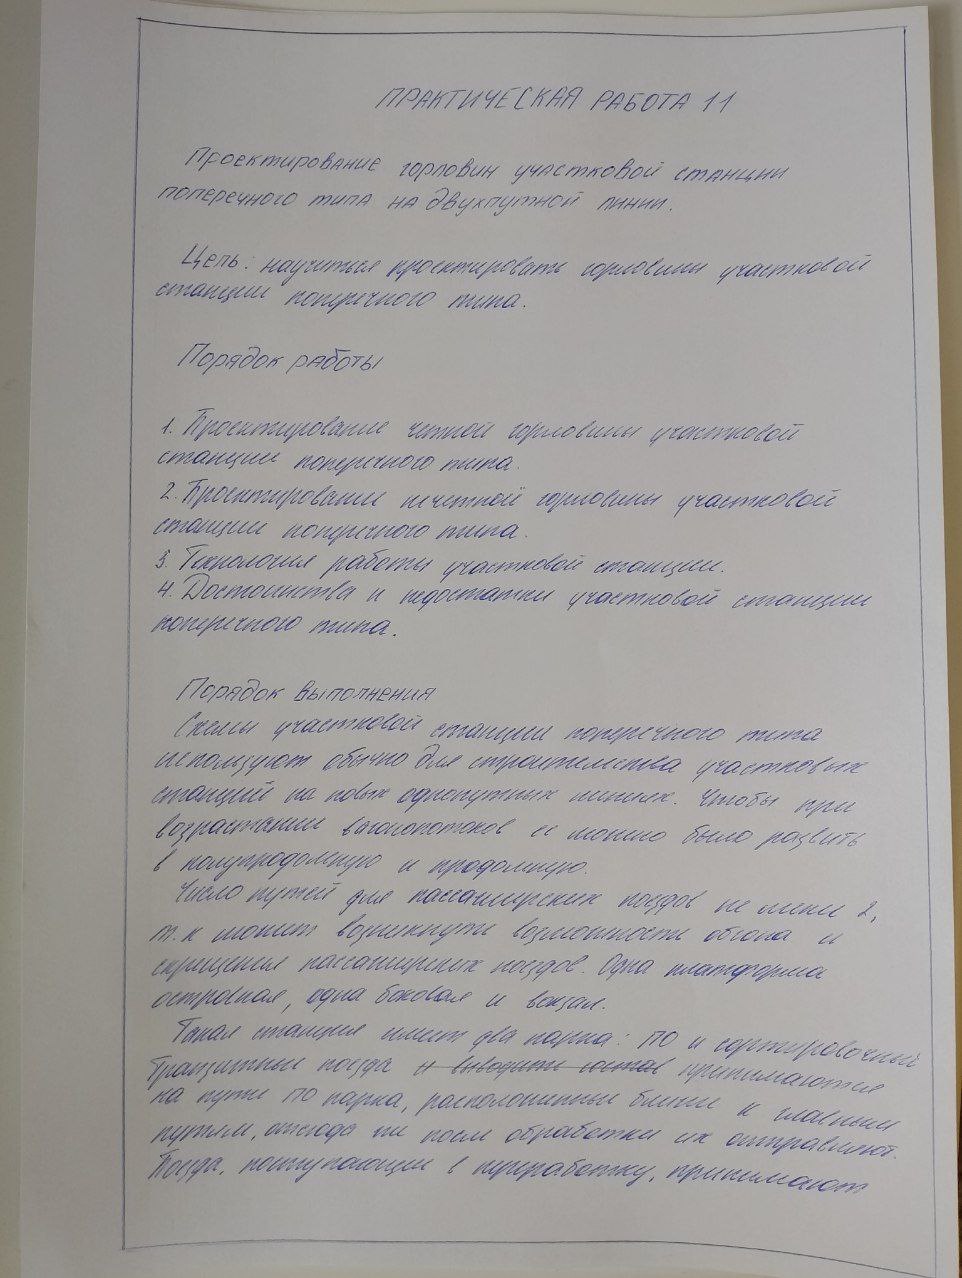 ПРАКТИЧЕСКАЯ РАБОТА 11
Проектирование горловин участковой станции
поперечного типа на двухпутной линии.
Цель: научиться проектировать горловины участковой
станции поперечного типа.
Порядок работы
1. Проектирование четной горловины участковой
станции поперечного типа.
2. Проектирование нечетной горловины участковой
станции поперечного типа.
3. Технология работы участковой станции.
4. Достоинства и недостатки участковой станции
поперечного типа.
Порядок выполнения
Схемы участковой станции поперечного типа
используют обычно для строительства участковых
станций на новых однопутных линиях. Чтобы при
возрастании вагонопотоков ее можно было развить
в полупродольную и продольную.
Число путей для пассажирских поездов не менее 2,
т.к может возникнуть возможность обгона и
скрещения пассажирских поездов. Одна платформа
островная, одна боковая и вокзал.
Такая станция имеет два парка: ПО и сортировочный
Транзитные поезда и выводить состав принимаются
на пути ПО парка, расположенные ближе к главным
путям, отсюда же после обработки их отправляют.
Поезда, поступающие в переработку, принимают